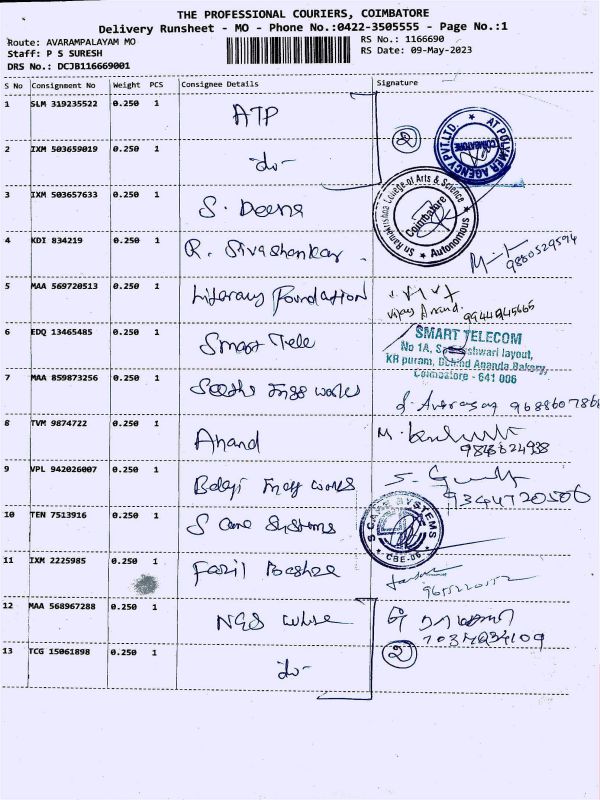 THE PROFESSIONAL COURIERS, COIMBATORE
Delivery Runsheet - MO - Phone No.:0422-3505555 - Page No.:1
Route: AVARAMPALAYAM MO
RS No.: 1166690
Staff: P S SURESH
RS Date: 09-May-2023
DRS No.: DCJB116669001
S No Consignment No Weight PCS Consignee Details Signature
1 SLM 319235522 0.250 1 ATP
AT POLYMER AGENCY PVT.LTD.
COIMBATORE
2 IXM 503659019 0.250 1 do- 2
3 IXM 503657633 0.250 1 S. Deena
Sri Ramakrishna College of Arts & Science
Coimbatore
Autonomous
4 KDI 834219 0.250 1 R. Sivashankar
9880529594
5 MAA 569720513 0.250 1 Literacy Foundation
Vijay Anand. 9944945665
6 EDQ 13465485 0.250 1 Smart Tele
SMART TELECOM
No 1A, layout,
KR puram, Behind Ananda Bakery,
Coimbatore - 641 006
7 MAA 859873256 0.250 1 Engg works
9688607868
8 TVM 9874722 0.250 1 Anand
9843624938
9 VPL 942026007 0.250 1 Balaji Engg works
9344720506
10 TEN 7513916 0.250 1 S Cane Systems
SYSTEMS
CBE-06
11 IXM 2225985 0.250 1 Fazil
9655220552
12 MAA 568967288 0.250 1 NGS
13 TCG 15061898 0.250 1 do- 2